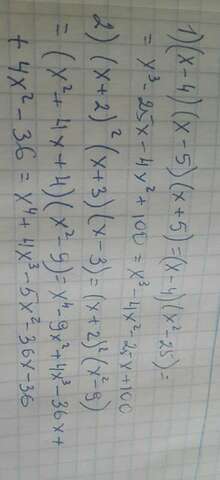 1) (x-4)(x-5)(x+5)=(x-4)(x²-25)=
= x³-25x-4x²+100 = x³-4x²-25x+100
2) (x+2)²(x+3)(x-3)=(x+2)²(x²-9)
= (x²+4x+4)(x²-9)=x⁴-9x²+4x³-36x+
+ 4x²-36 = x⁴+4x³-5x²-36x-36